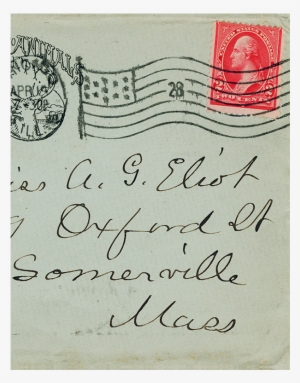 APR 1
ILL.
28
UNITED STATES POSTAGE
TWO CENTS
iss A. G. Eliot
9 Oxford St
Somerville
Mass